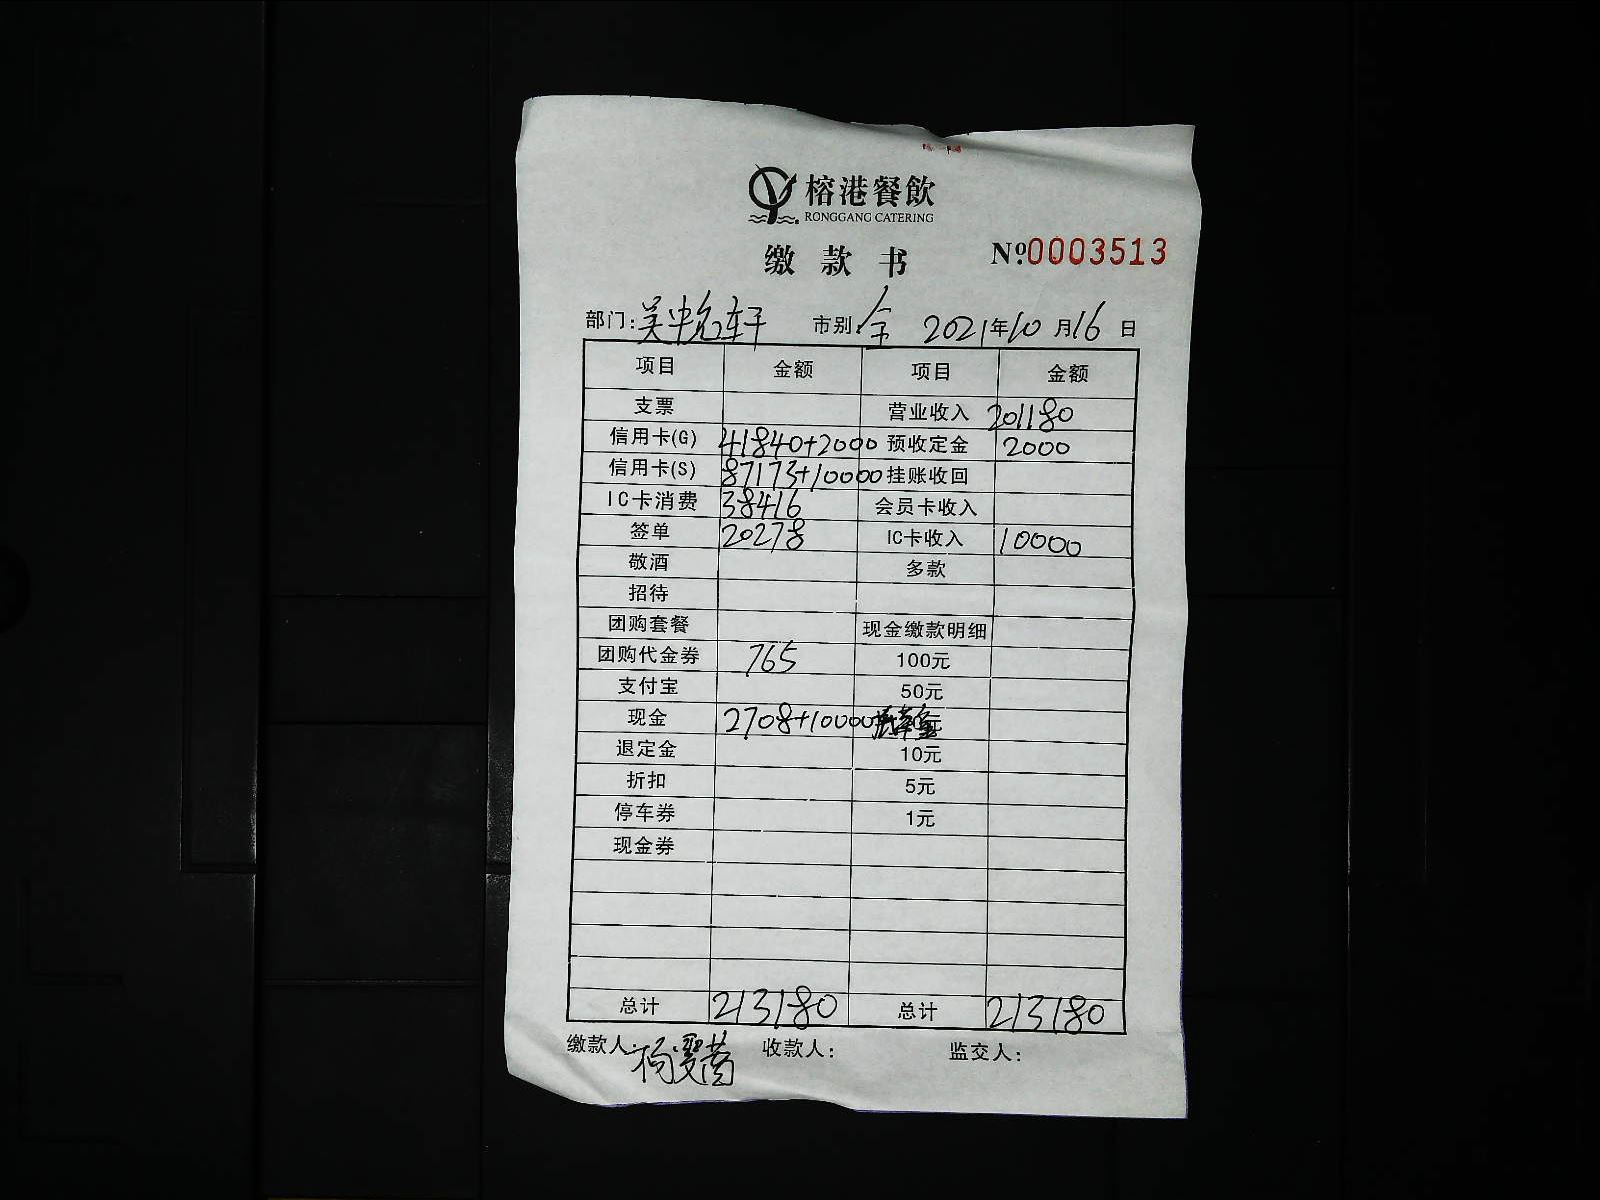 榕港餐飲
RONGGANG CATERING
缴款书 №0003513
部门:吴中 轩 市别:全 2021年10月16日
项目 金额 项目 金额
支票 营业收入 201180
信用卡(G) 41840+2000 预收定金 2000
信用卡(S) 87173+10000 挂账收回
IC卡消费 38416 会员卡收入
签单 20278 IC卡收入 10000
敬酒 多款
招待
团购套餐 现金缴款明细
团购代金券 765 100元
支付宝 50元
现金 2708+10000 元
退定金 10元
折扣 5元
停车券 1元
现金券
总计 213180 总计 213180
缴款人:杨 茜 收款人: 监交人: